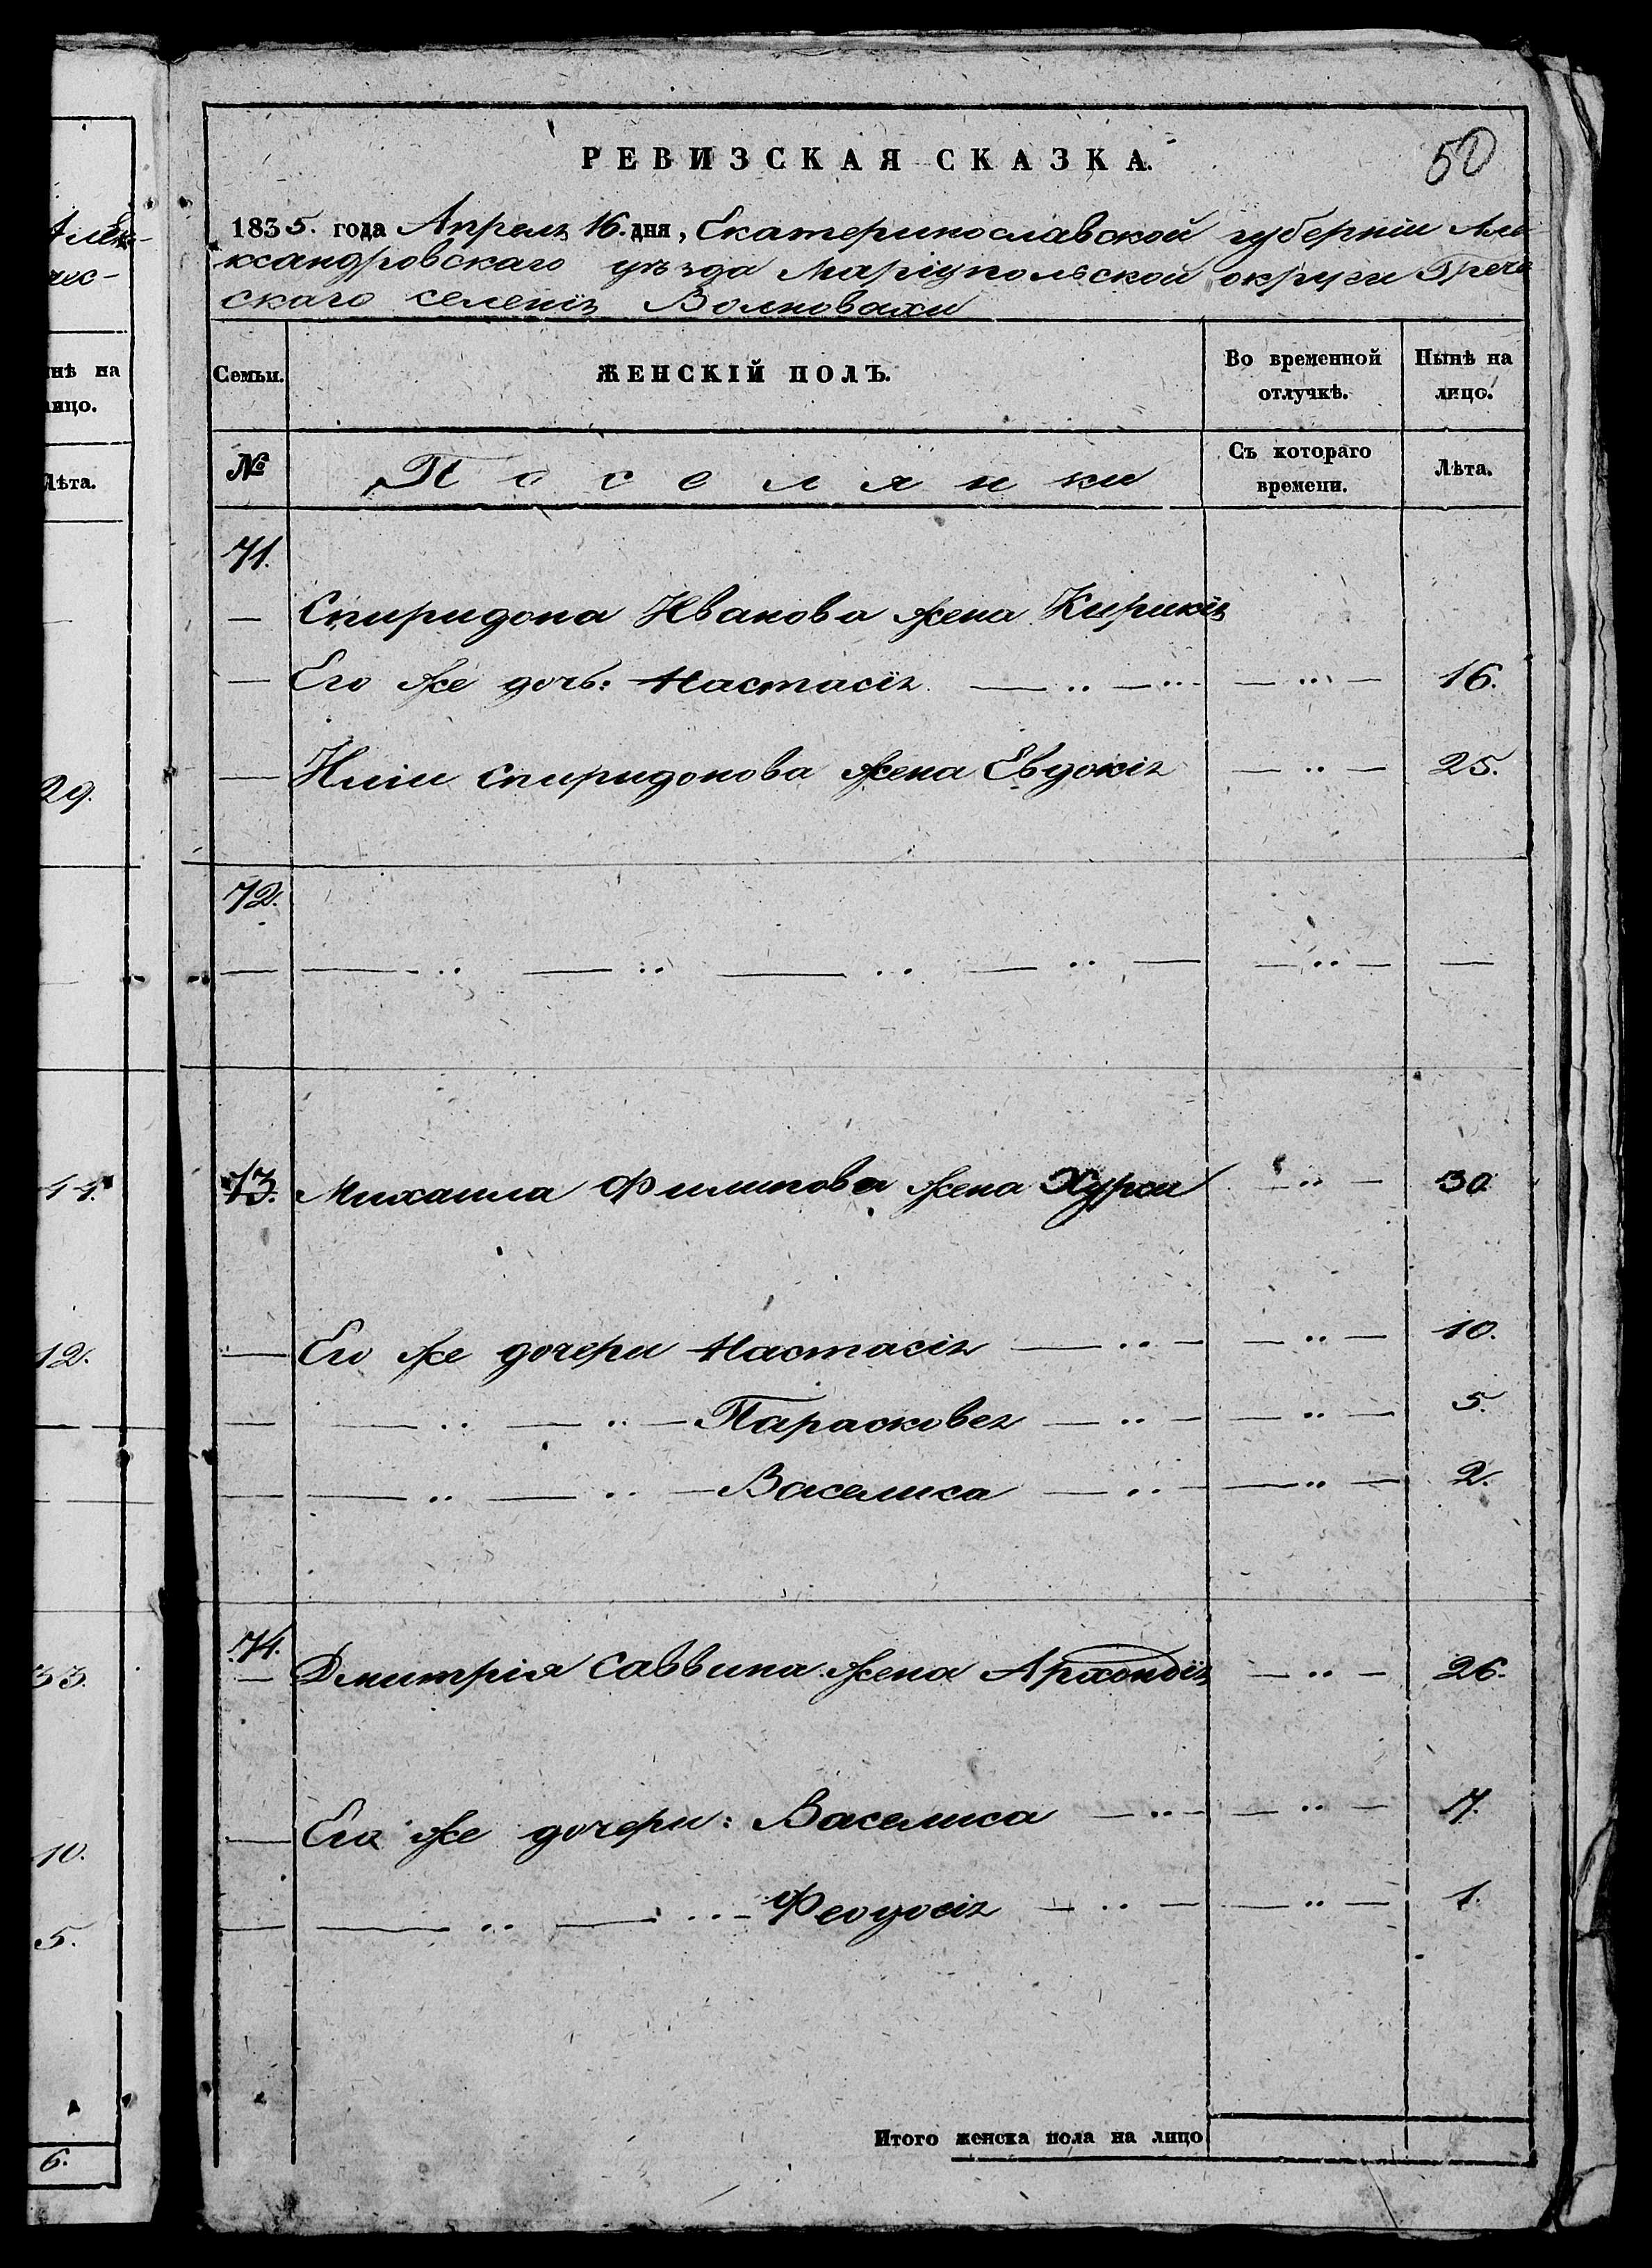 Алек-
чес-
нѣ на
лицо.
Лѣта.
29.
44.
12.
33.
10.
5.
6.
РЕВИЗСКАЯ СКАЗКА.
50
1835. года Апреля 16. дня, Екатеринославской губерніи Але
ксандровскаго уѣзда Маріупольской округи Грече
скаго селенія Волновахи
Семьи. ЖЕНСКІЙ ПОЛЪ. Во временной отлучкѣ. Ныпѣ на лицо.
№ Поселянки Съ котораго времени. Лѣта.
71.
— Спиридона Иванова жена Кирикія
— Его же дочь: Настасія — „ — „ — „ — 16.
— Иліи Спиридонова жена Евдокія — „ — 25.
72.
— — „ — „ — „ — „ — — „ — —
73. Михаила Филипова жена Хурси — „ — 30
— Его же дочери Настасія — „ — — „ — 10.
— — „ — „ — Парасковея — „ — — „ — 5.
— — „ — „ — Васелиса — „ — — „ — 2.
74.
— Дмитрія Саввина жена Архондія — „ — 26.
— Его же дочери: Васелиса — „ — — „ — 7.
— — „ — „ — Феодосія — „ — — „ — 1.
Итого женска пола на лицо